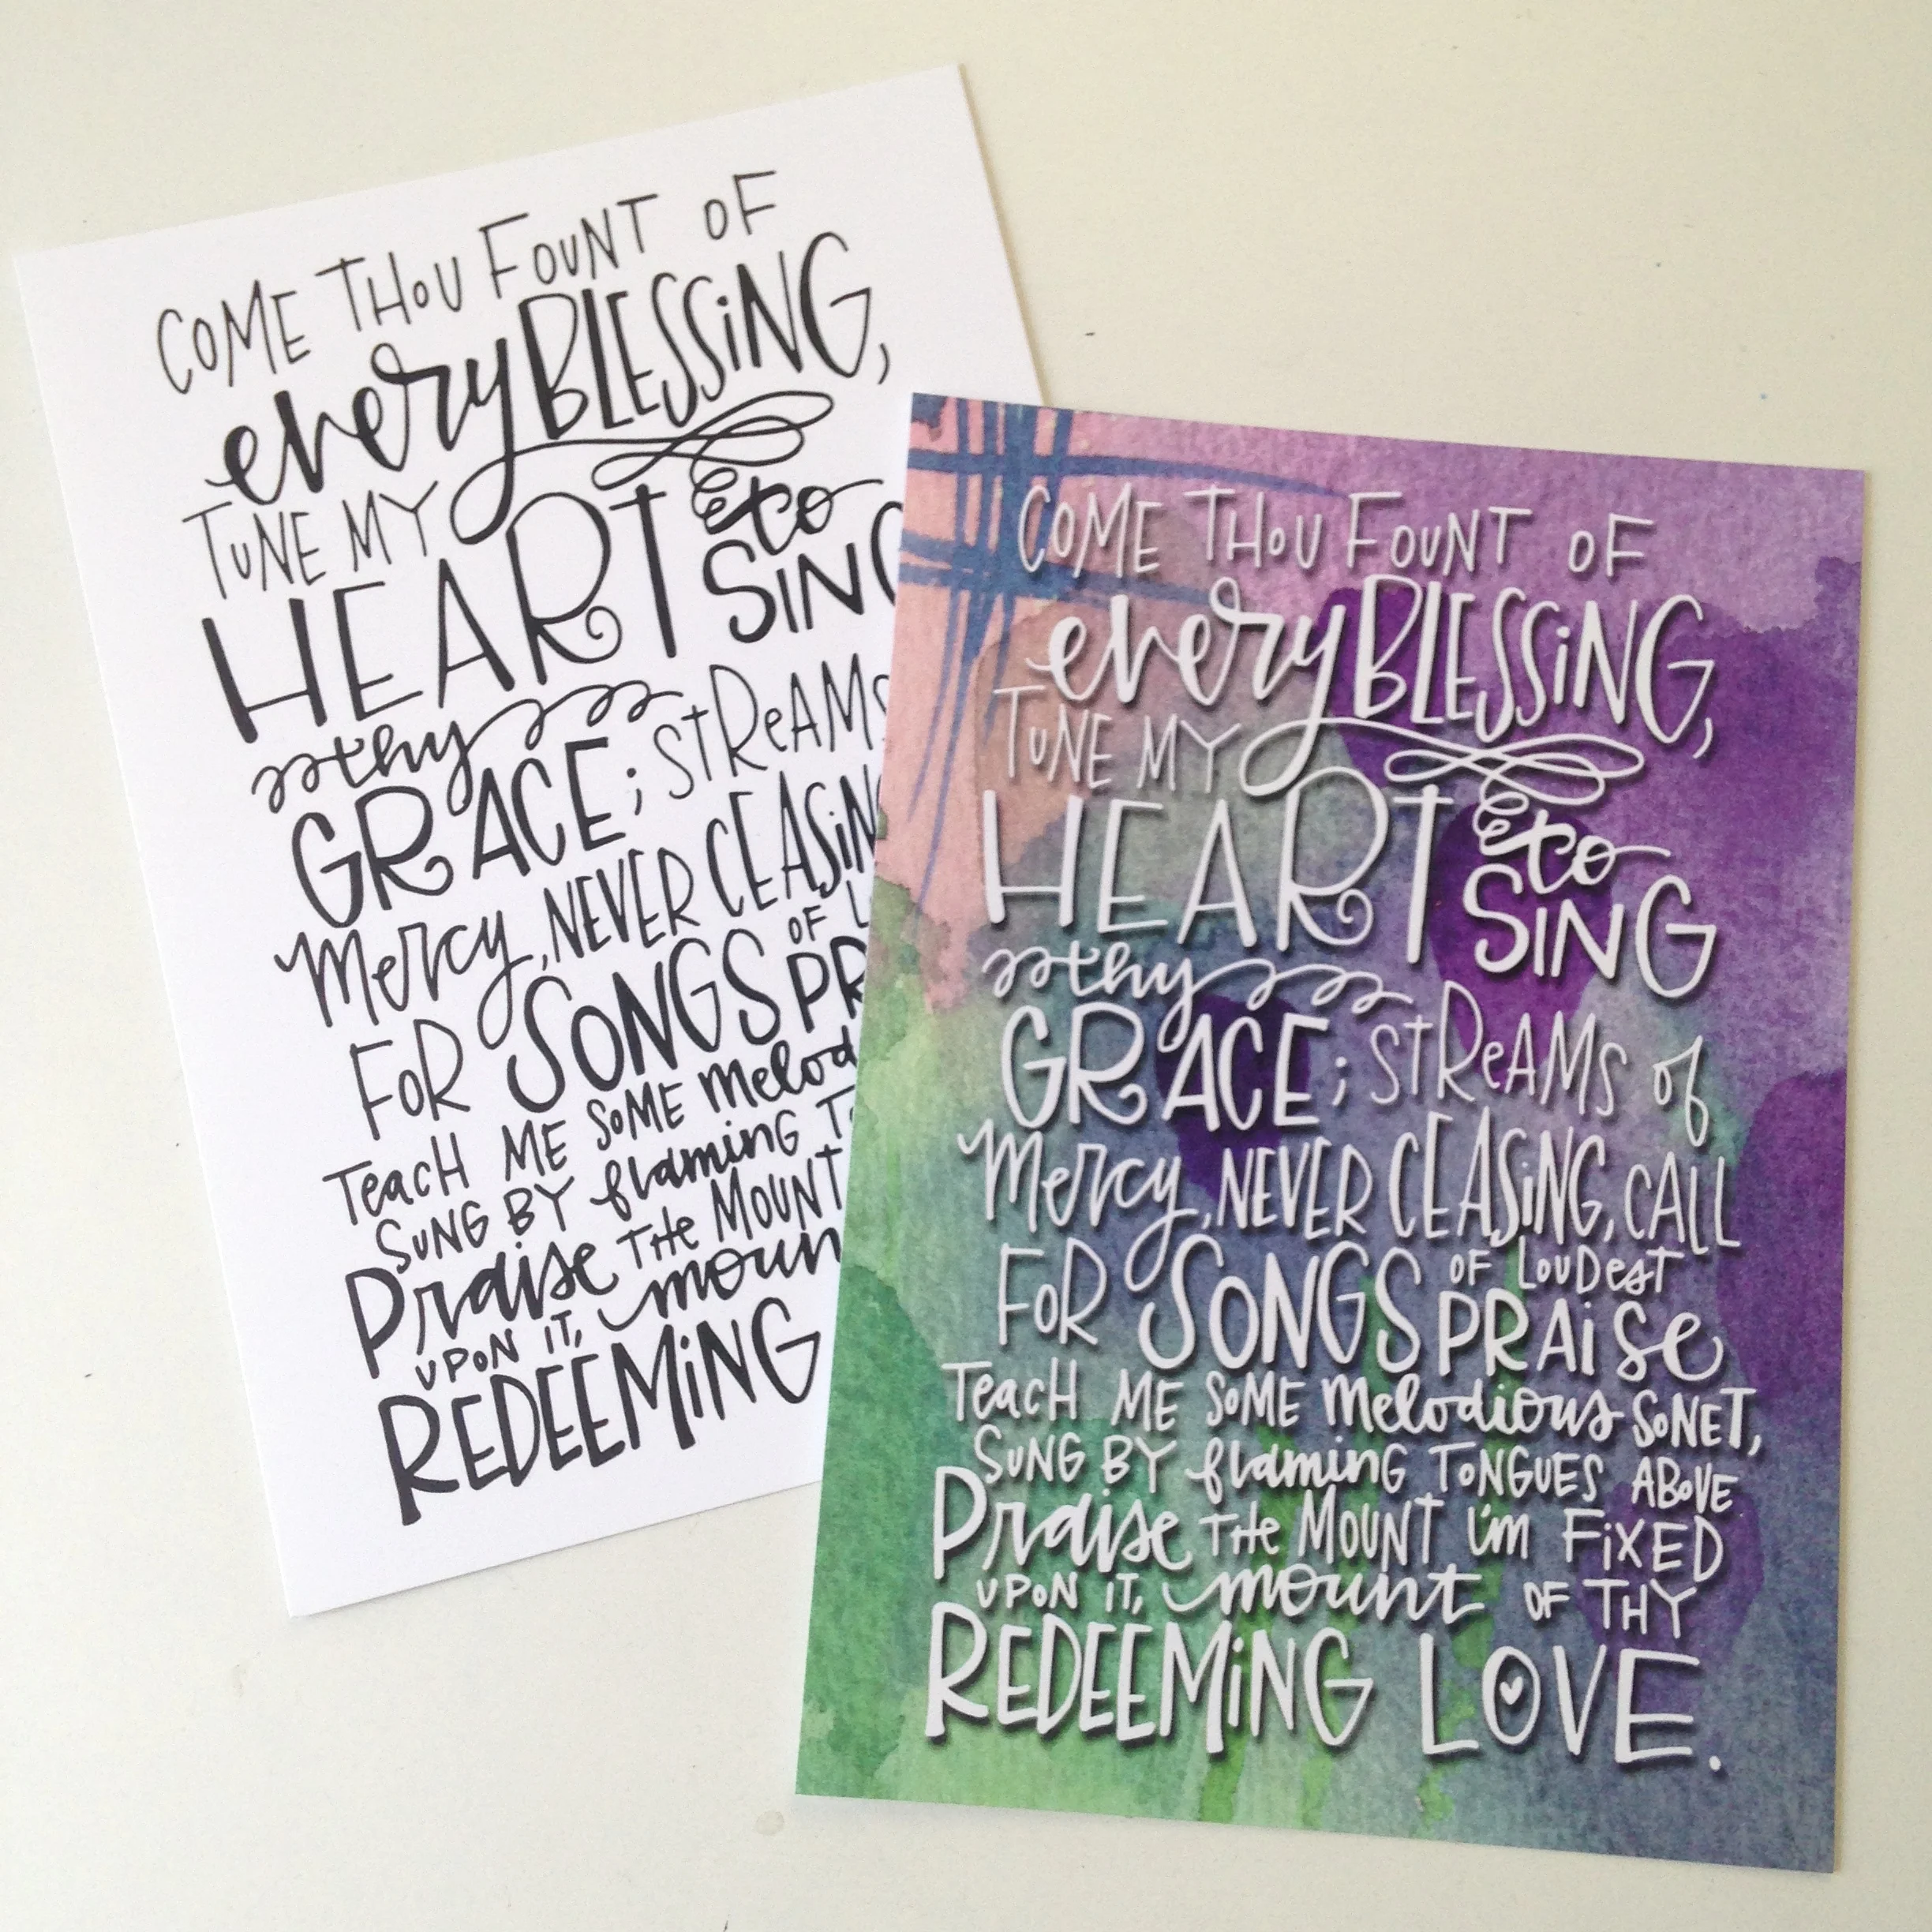 COME THOU FOUNT OF
every BLESSiNG,
TUNE MY
HEART to
SING
thy
GRACE; STReAMS
Mercy, NEVER CEASiN
OF L
FOR SONGS PR
TeacH ME SOME Melod
SUNG BY flaming T
Praise THe MOUNT
UPON IT, moun
REDEEMiNG
COME THOU FOUNT OF
every BLESSiNG,
TUNE MY
HEART to
SING
thy
GRACE; STReAMS of
Mercy, NEVER CEASiNG, CALL
OF LOUDesT
FOR SONGS PRAiSe
TeacH ME SOME Melodious SONET,
SUNG BY flaming TONGUES ABOVE
Praise THe MOUNT i'm FiXED
UPON IT, mount OF THY
REDEEMiNG LOVE.